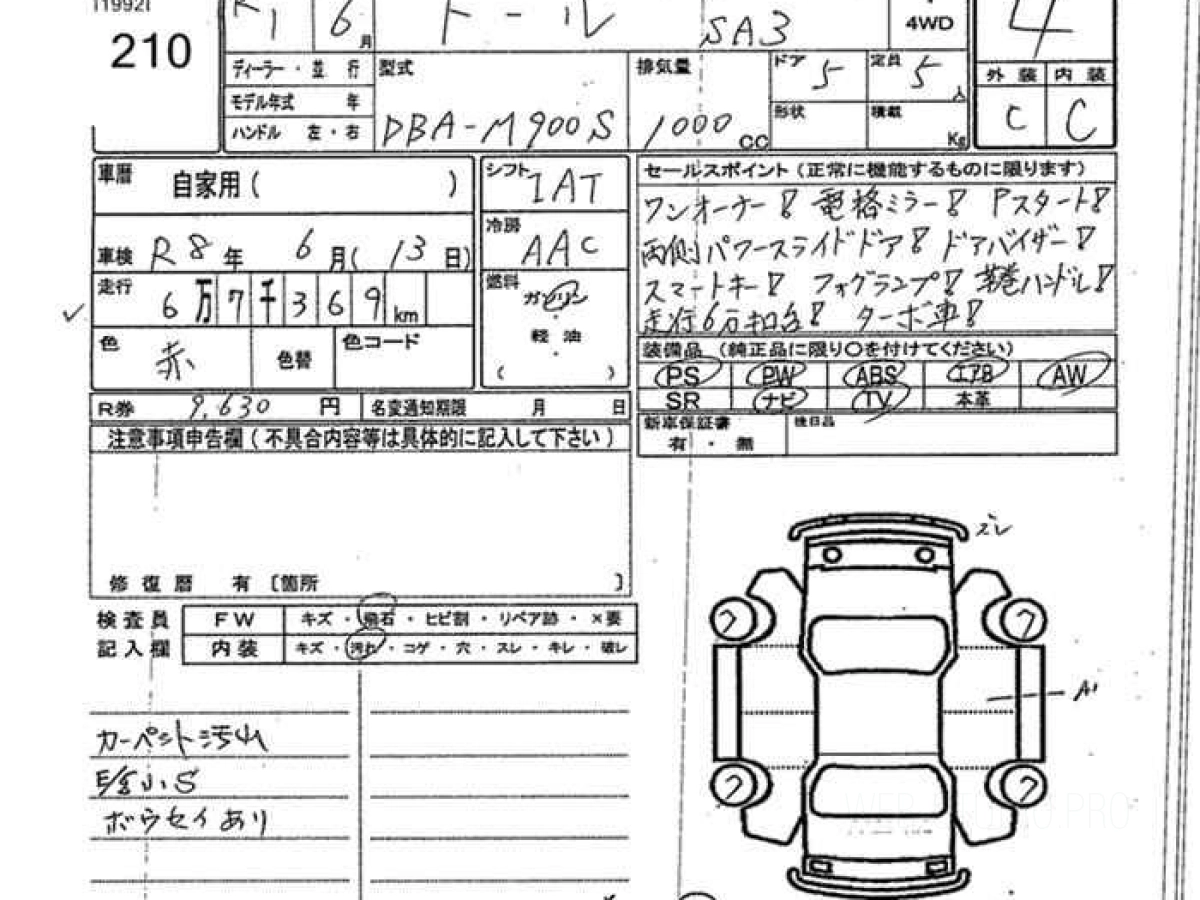 [1992]
210
R1 6月 トール SA3 4WD 4
ディーラー・並行 型式 排気量 ドア 5 定員 5人 外装 内装
モデル年式 年
ハンドル 左・右 DBA-M900S 1000cc 形状 積載 Kg C C
車歴 自家用( )
車検 R8年 6月(13日)
走行 6万7千369km
色 赤 色替 色コード
シフト IAT
冷房 AAC
燃料 ガソリン
・
軽油
( )
セールスポイント(正常に機能するものに限ります)
ワンオーナー! 電格ミラー! Pスタート!
両側パワースライドドア! ドアバイザー!
スマートキー! フォグランプ! 革巻ハンドル!
走行6万キロ台! ターボ車!
装備品 (純正品に限り〇を付けてください)
PS PW ABS エアB AW
SR ナビ TV 本革
新車保証書 後日品
有・無
R券 9,630円 名変通知期限 月 日
注意事項申告欄(不具合内容等は具体的に記入して下さい)
修復歴 有〔箇所 〕
検査員 FW キズ・飛石・ヒビ割・リペア跡・×要
記入欄 内装 キズ・汚れ・コゲ・穴・スレ・キレ・破レ
カーペット汚レ
小S
ボウセイあり
ズレ
フ フ
A1
フ フ